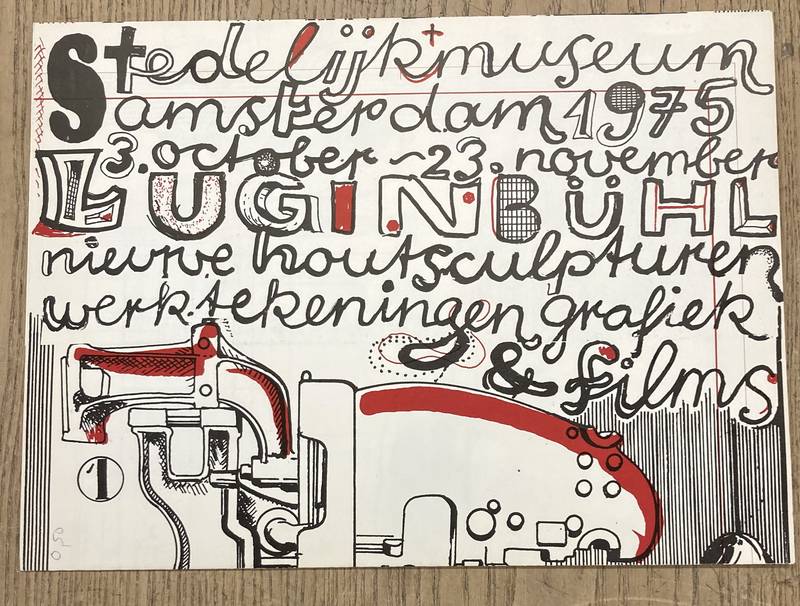 Stedelijk museum
amsterdam 1975
3. october ~ 23. november
LUGINBÜHL
nieuwe houtsculpturen
werktekeningen grafiek
& films
1
0,50